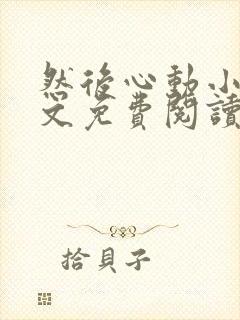 然後心動小
文免費閱讀
拾貝子